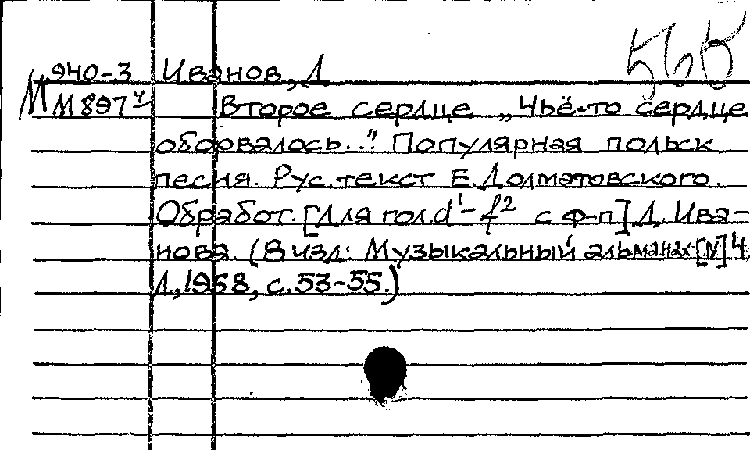 940-3 Иванов, Л
М М 897 Второе сердце „Чьё-то сердце
оборвалось..." Популярная польск
песня. Рус. текст Е. Долматовского.
Обработ. [Для гол. d¹-f² с ф-п] Л. Ива-
нова. (В изд: Музыкальный альманах [N] 4.
Л., 1958, с. 53-55.)